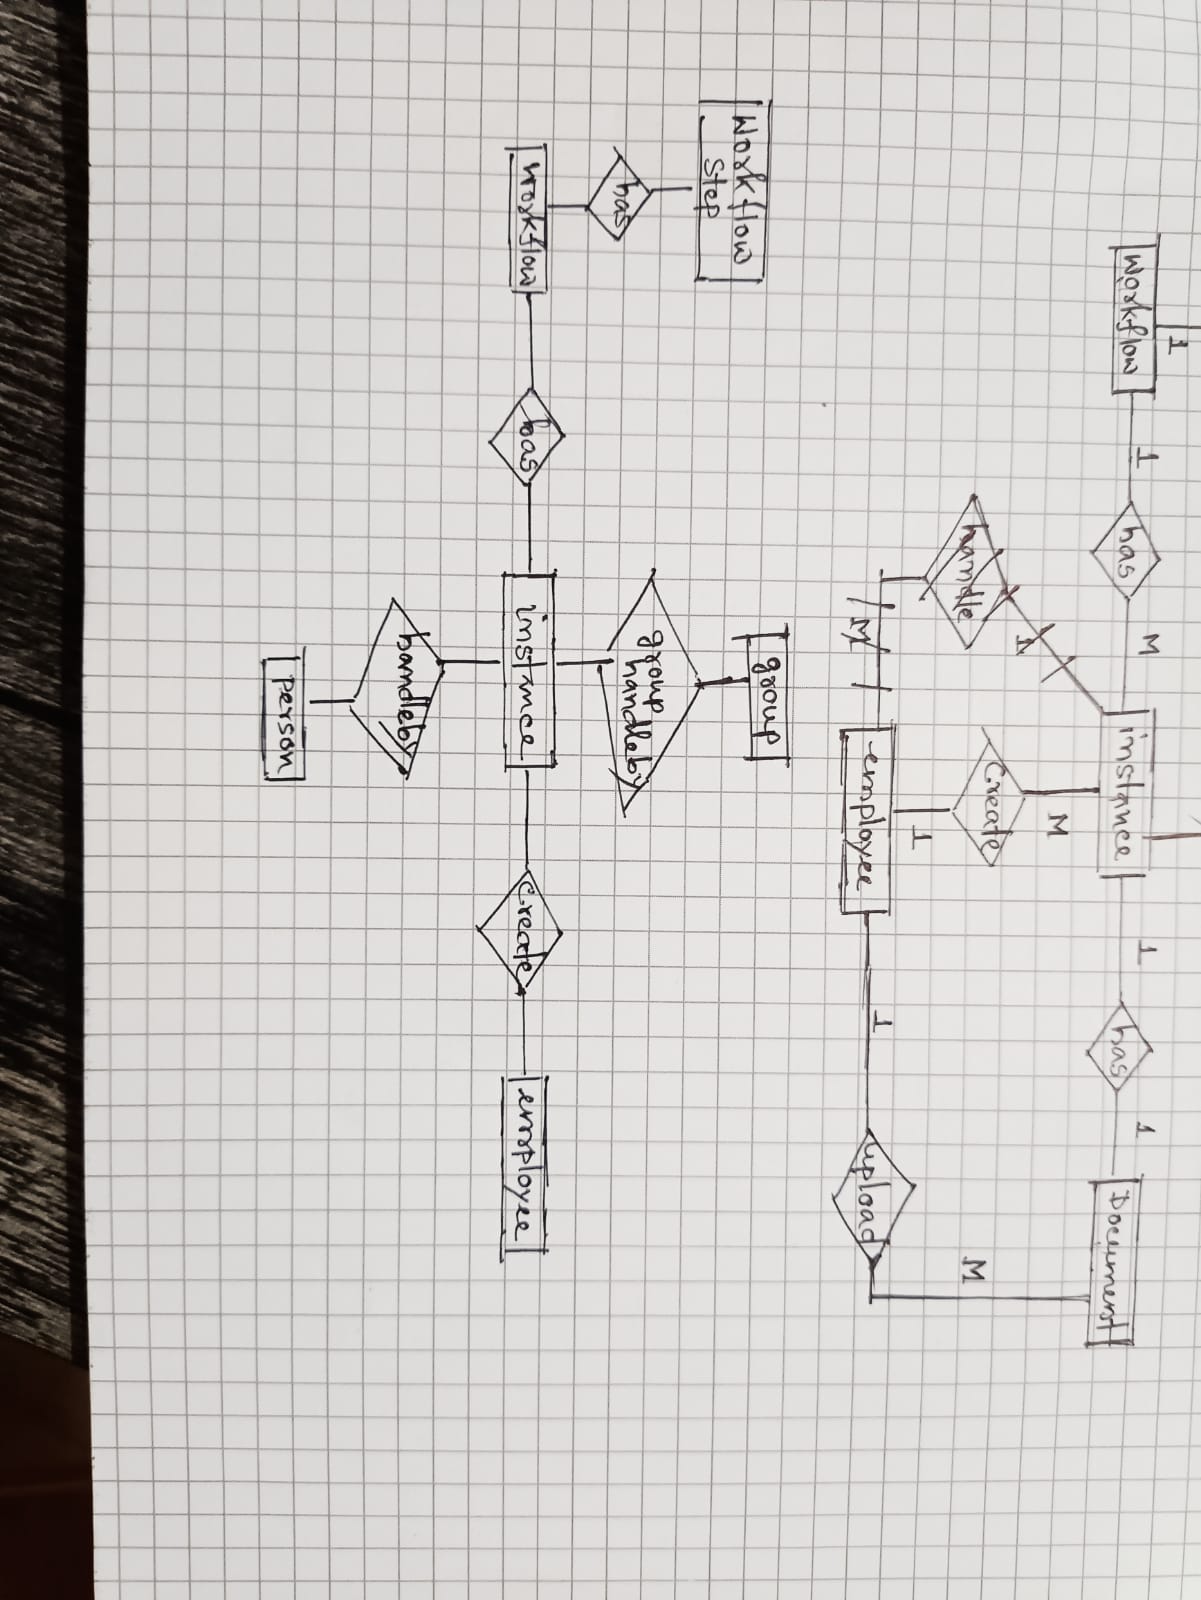 1
Workflow
1
has
M
instance
1
has
1
Document
1
M
handle
Create
M
1
M
employee
1
upload
group
Workflow
Step
group
handleby
has
workflow
has
instance
Create
employee
handleby
person